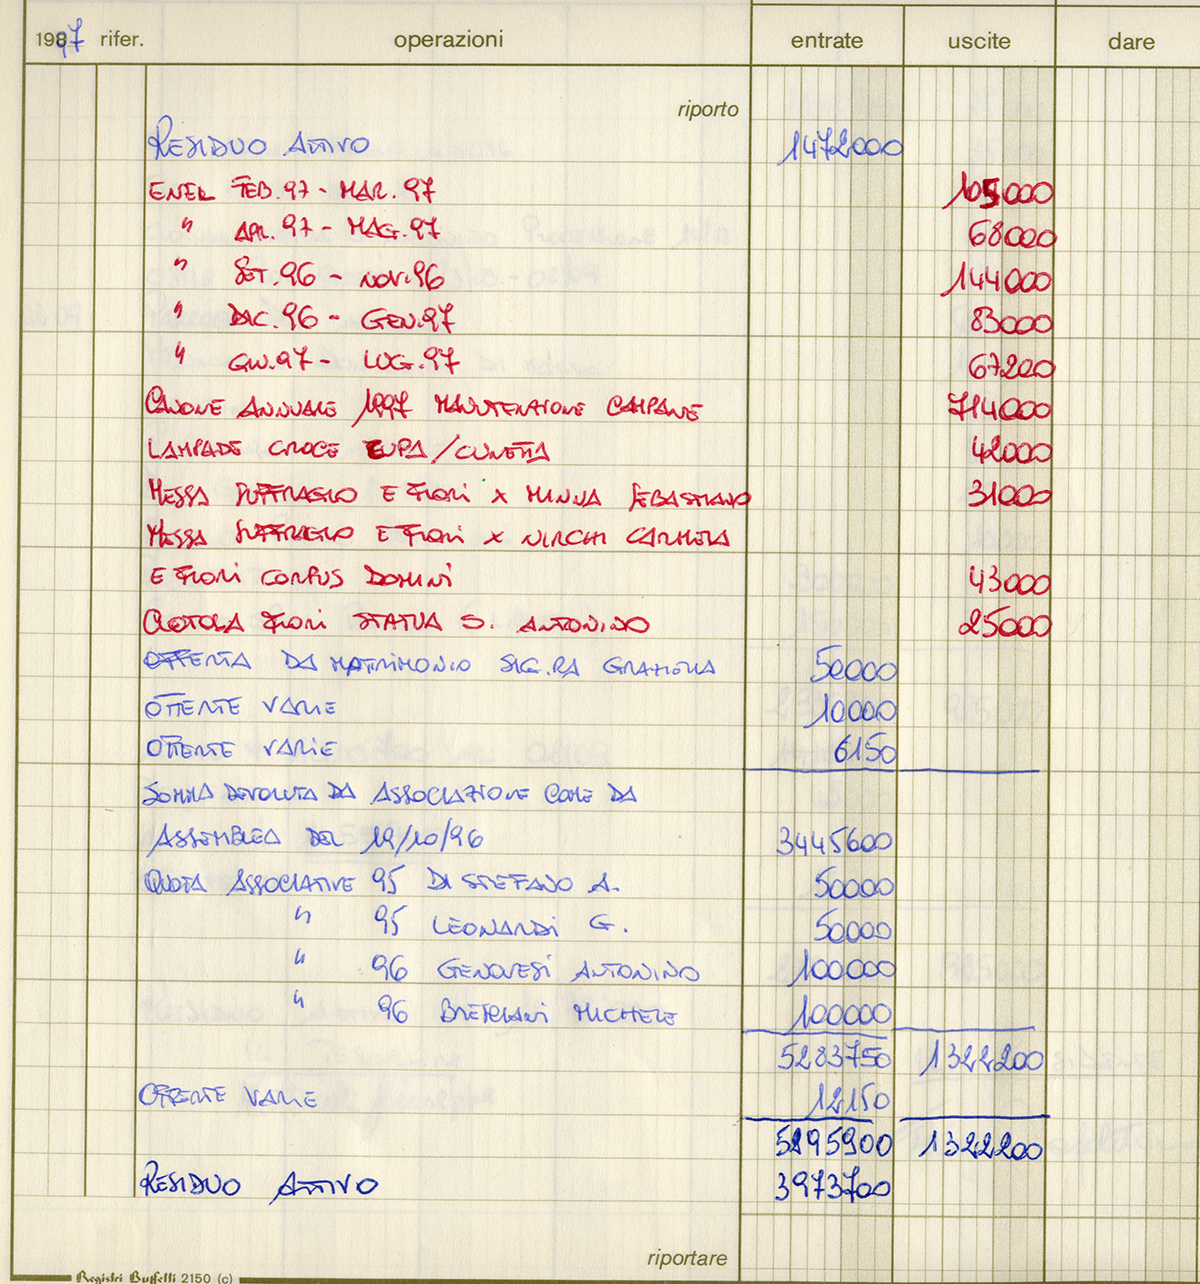 1997 rifer. operazioni entrate uscite dare
riporto
RESIDUO ATTIVO 1472000
ENEL FEB.97 - MAR.97 105000
" APR.97 - MAG.97 68000
" SET.96 - NOV.96 144000
" DIC.96 - GEN.97 83000
" GIU.97 - LUG.97 67200
CANONE ANNUALE 1997 MANUTENZIONE CAMPANE 714000
LAMPADE CROCE /CUNETTA 42000
MESSA SUFFRAGIO E FIORI X MINNA SEBASTIANO 31000
MESSA SUFFRAGIO E FIORI X NIRCHI CARMELA
E FIORI CORPUS DOMINI 43000
CIOTOLA FIORI STATUA S. ANTONINO 25000
OFFERTA DA MATRIMONIO SIG.RA GRAZIELLA 50000
OFFERTE VARIE 10000
OFFERTE VARIE 6150
SOMMA DEVOLUTA DA ASSOCIAZIONE COME DA
ASSEMBLEA DEL 19/10/96 3445600
QUOTA ASSOCIATIVE 95 DI STEFANO A. 50000
" 95 LEONARDI G. 50000
" 96 GENOVESI ANTONINO 100000
" 96 MICHELE 100000
5283750 1322200
OFFERTE VARIE 12150
5295900 1322200
RESIDUO ATTIVO 3973700
riportare
Registri Buffetti 2150 (c)